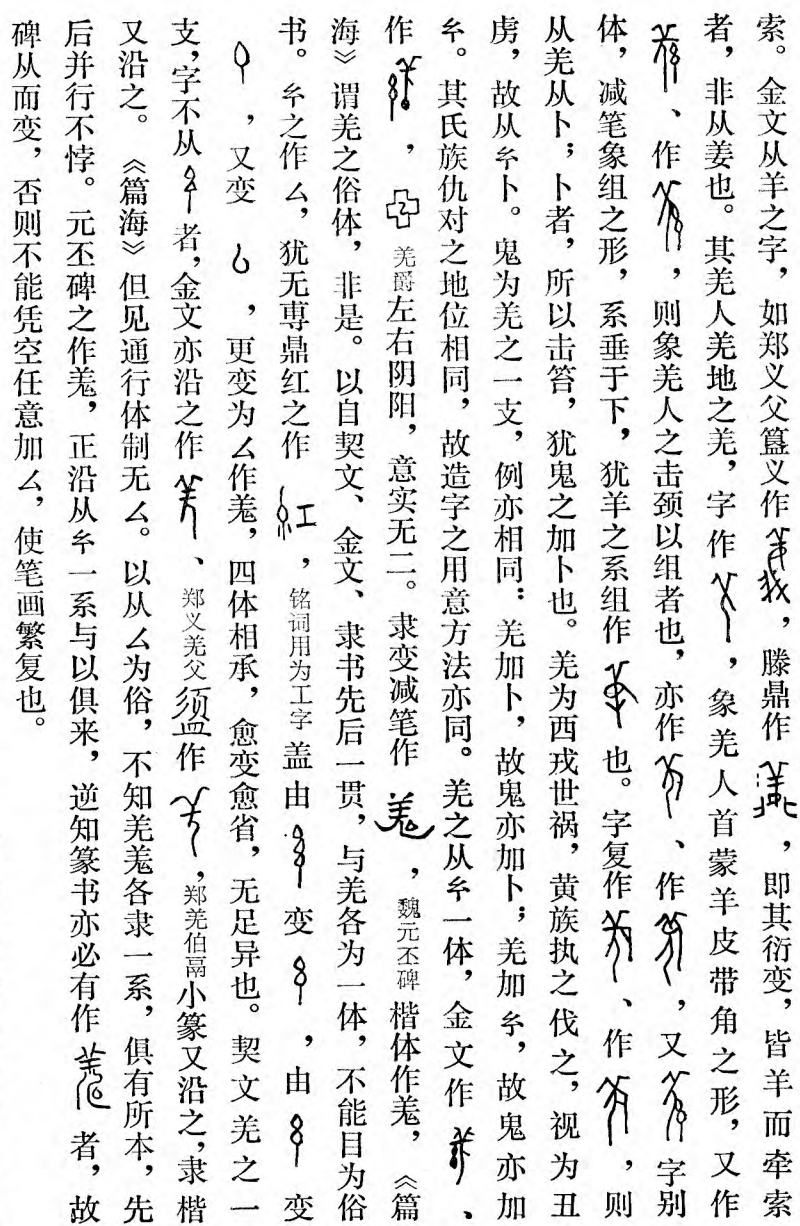 索。金文从羊之字，如郑义父簋义作，滕鼎作，即其衍变，皆羊而牵索
者，非从姜也。其羌人羌地之羌，字作，象羌人首蒙羊皮带角之形，又作
、作，则象羌人之击颈以组者也，亦作、作，又字别
体，减笔象组之形，系垂于下，犹羊之系组作也。字复作、作，则
从羌从卜；卜者，所以击笞，犹鬼之加卜也。羌为西戎世祸，黄族执之伐之，视为丑
虏，故从糸卜。鬼为羌之一支，例亦相同：羌加卜，故鬼亦加卜；羌加糸，故鬼亦加
糸。其氏族仇对之地位相同，故造字之用意方法亦同。羌之从糸一体，金文作、
作，羌爵左右阴阳，意实无二。隶变减笔作，魏元丕碑楷体作羗，《篇
海》谓羌之俗体，非是。以自契文、金文、隶书先后一贯，与羌各为一体，不能目为俗
书。糸之作厶，犹无尃鼎红之作，铭词用为工字盖由变，由变
，又变，更变为厶作羗，四体相承，愈变愈省，无足异也。契文羌之一
支，字不从者，金文亦沿之作、郑义羌父盨作，郑羌伯鬲小篆又沿之，隶楷
又沿之。《篇海》但见通行体制无厶。以从厶为俗，不知羌羗各隶一系，俱有所本，先
后并行不悖。元丕碑之作羗，正沿从糸一系与以俱来，逆知篆书亦必有作者，故
碑从而变，否则不能凭空任意加厶，使笔画繁复也。